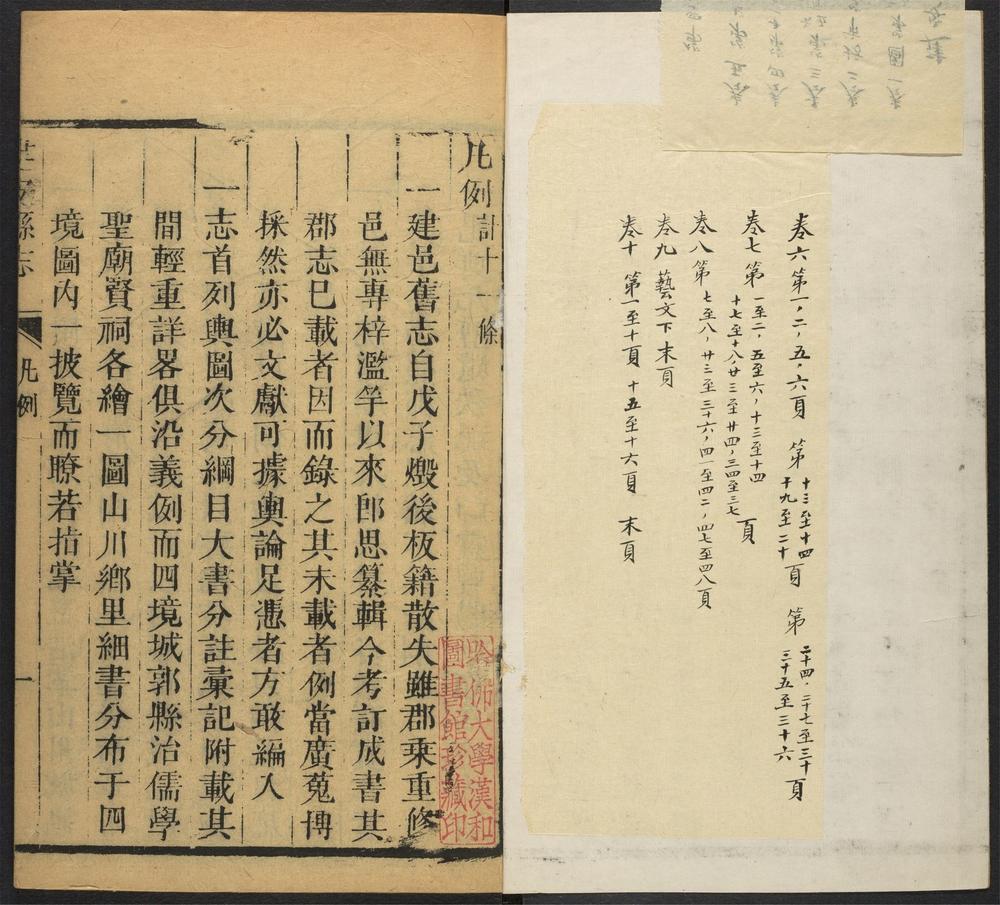 卷六 第一，二，五，六頁 第十三至十四 十九至二十頁 第二十四，二十七至三十 三十五至三十六頁
卷七 第一至二，五至六，十三至十四 十七至十八，廿三至廿四，三四至三七頁
卷八 第七至八，廿三至三十六，四一至四二，四七至四八頁
卷九 藝文下末頁
卷十 第一至十頁 十五至十六頁 末頁
凡例計十一條
一建邑舊志自戊子燬後板籍散失雖郡乘重修
邑無專梓濫竽以來即思纂輯今考訂成書其
郡志已載者因而錄之其未載者例當廣蒐博
採然亦必文獻可據輿論足憑者方敢編入
一志首列輿圖次分綱目大書分註彙記附載其
間輕重詳畧俱沿義例而四境城郭縣治儒學
聖廟賢祠各繪一圖山川鄉里細書分布于四
境圖內一披覽而瞭若指掌
縣志
凡例
一
哈佛大學漢和
圖書館珍藏印